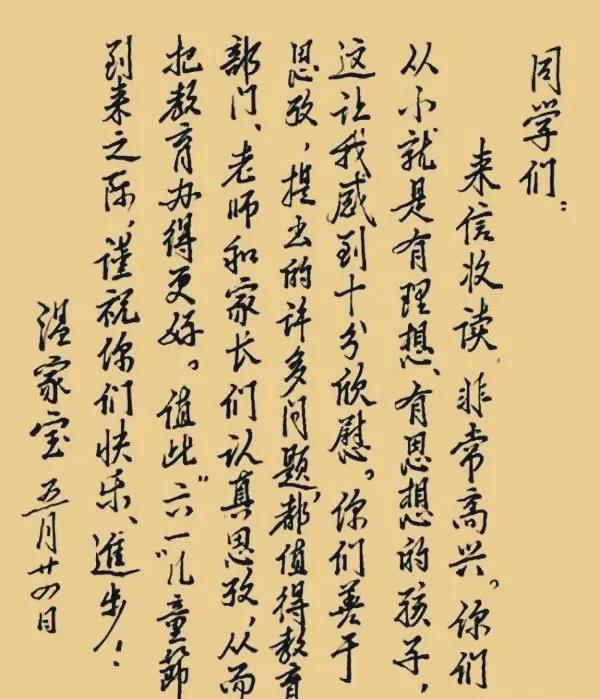 同学们：
来信收读，非常高兴。你们
从小就是有理想、有思想的孩子，
这让我感到十分欣慰。你们善于
思考，提出的许多问题，都值得教育
部门、老师和家长们认真思考，从而
把教育办得更好。值此“六一”儿童節
到来之际，谨祝你们快乐、進步！
温家宝 五月廿四日